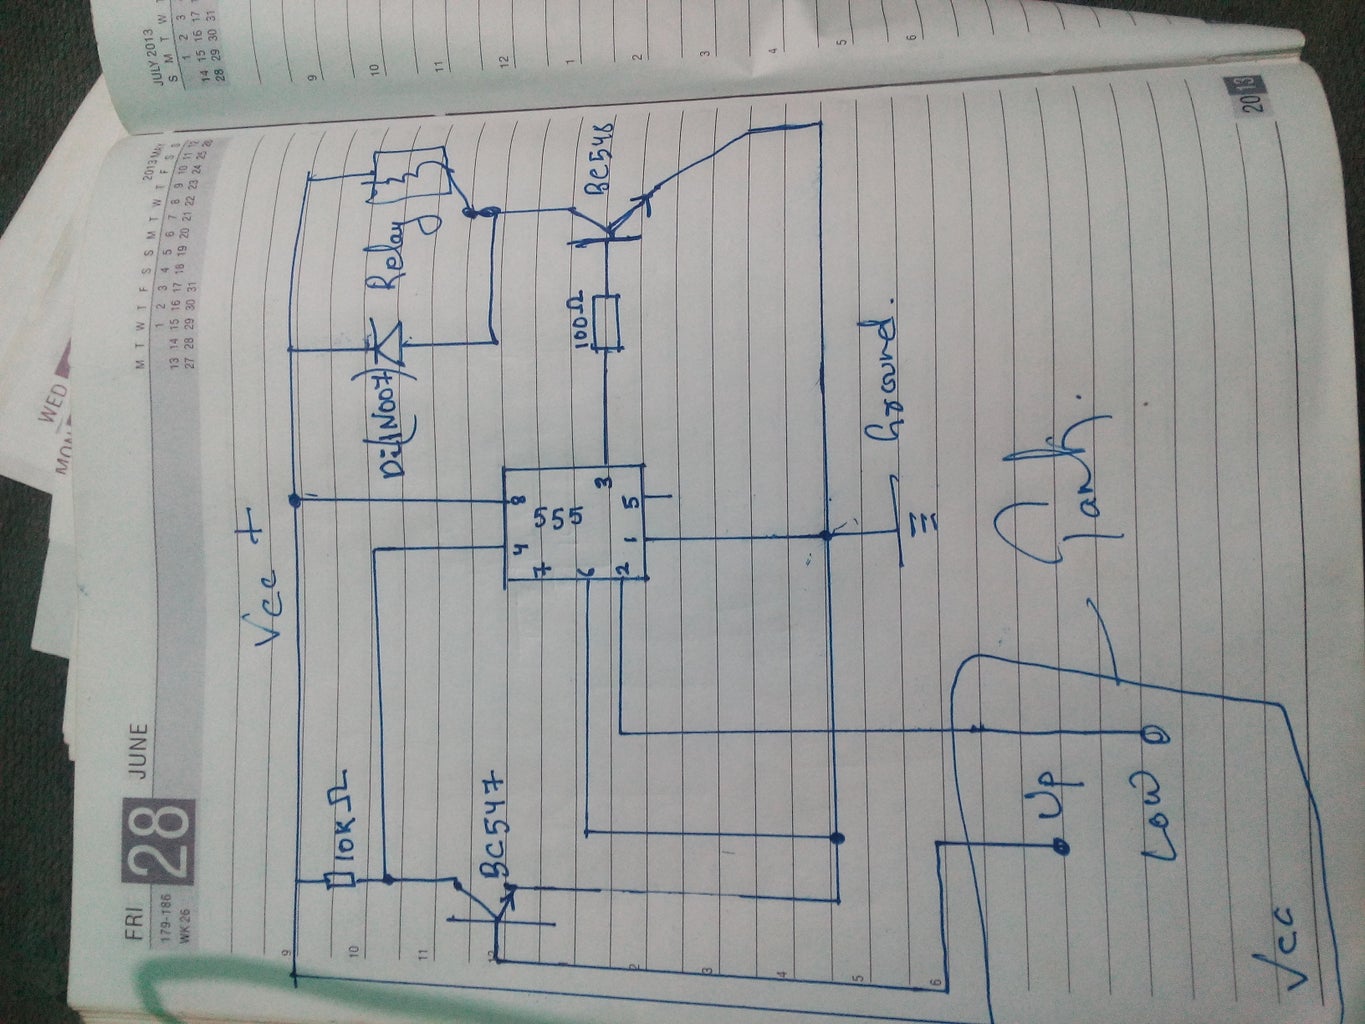 FRI 28 JUNE
179-186
WK 26
2013 MAY
M T W T F S S M T W T F S S
1 2 3 4 5 6 7 8 9 10 11 12
13 14 15 16 17 18 19 20 21 22 23 24 25 26
27 28 29 30 31
9
10
11
12
1
2
3
4
5
6
Vcc +
10KΩ
BC547
Relay
BC548
100Ω
555
8
4
7
6
2
1
5
3
Ground.
Tank.
Up
Low
Vcc
2013
JULY 2013
S M T W T
1 2 3
14 15 16 17
21 22 23 24
28 29 30 31
9
10
11
12
1
2
3
4
5
6
WED
MON